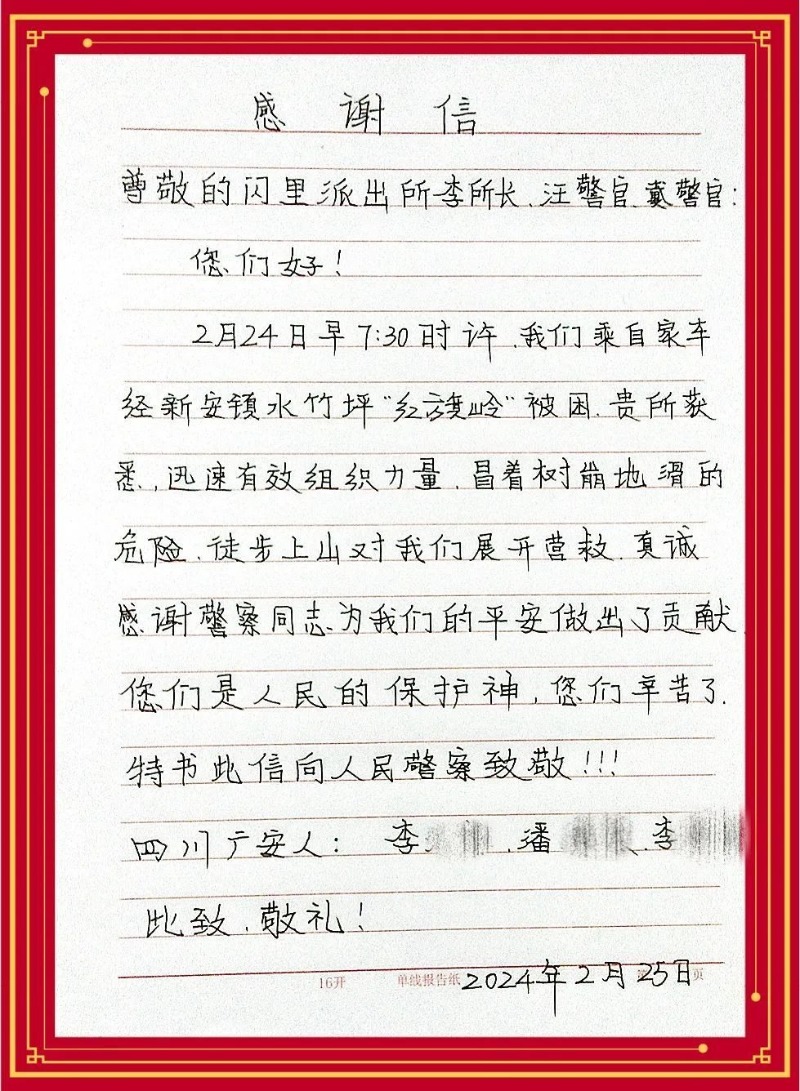 感谢信
尊敬的闪里派出所李所长、汪警官、戴警官：
您们好！
2月24日早7:30时许，我们乘自家车
经新安镇水竹坪“红旗岭”被困，贵所获
悉，迅速有效组织力量，冒着树崩地滑的
危险，徒步上山对我们展开营救，真诚
感谢警察同志为我们的平安做出了贡献，
您们是人民的保护神，您们辛苦了，
特书此信向人民警察致敬！！！
四川广安人：李、潘、李
此致，敬礼！
16开 单线报告纸 2024年2月25日 页